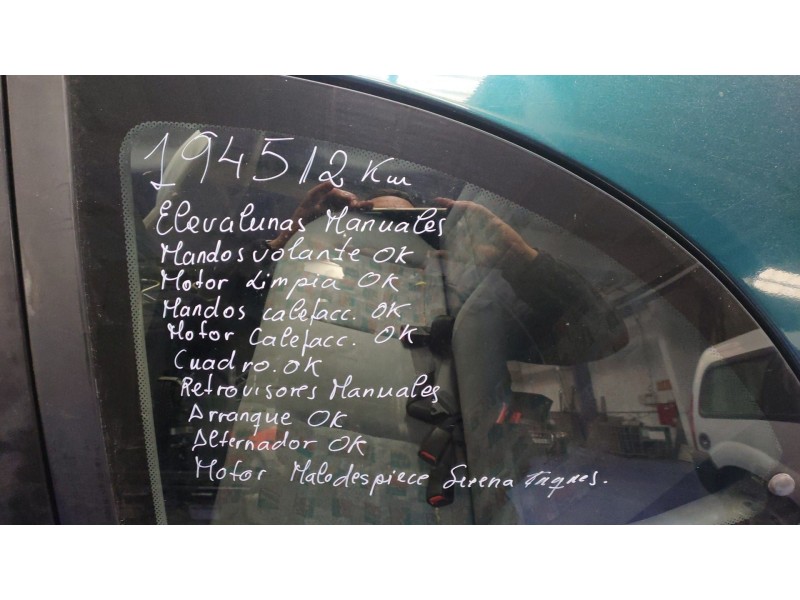 194512 Km
Elevalunas Manuales
Mandos volante OK
Motor Limpia OK
Mandos calefacc. OK
Motor Calefacc. OK
Cuadro. OK
Retrovisores Manuales
Arranque OK
Alternador OK
Motor Malo despiece Serena